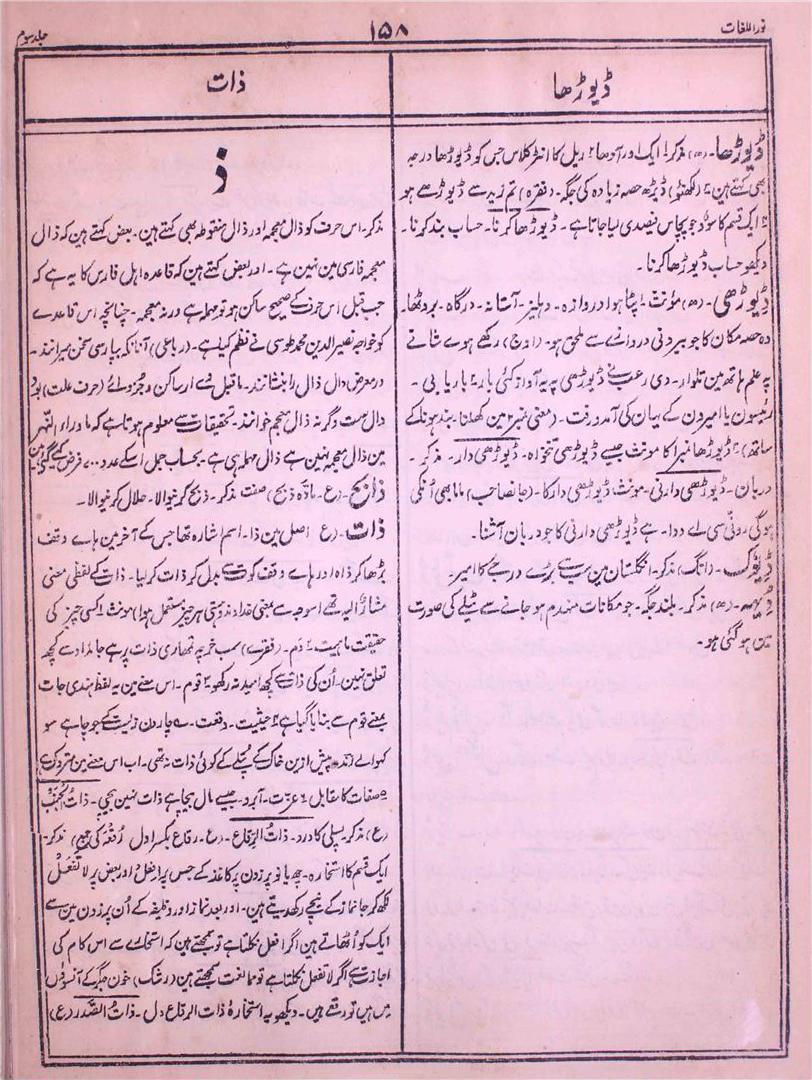 نوراللغات
۱۵۸
جلد سوم
ڈیوڑھا
ذات
ڈیوڑھا۔ (ھ) مذکر۔ ایک اور آدھا ۲ ریل کا انٹر کلاس جس کو ڈیوڑھا درجہ
بھی کہتے ہین ۳ (لکھنؤ) ڈیڑھ حصہ زیادہ کی جگہ۔ (فقرہ) تم زید سے ڈیوڑھے ہو
ایک قسم کا سود جو پچاس فیصدی لیا جاتا ہے۔ ڈیوڑھا کرنا۔ حساب بند کرنا۔
دیکھو حساب ڈیوڑھا کرنا۔
ڈیوڑھی۔ (ھ) مؤنث۔ پٹا ہوا دروازہ۔ دہلیز۔ آستانہ۔ درگاہ۔ بروٹھا۔
وہ حصہ مکان کا جو بیرونی دروازے سے ملحق ہو۔ (اوج) رکھے ہوے شانے
پہ علم ہاتھ مین تلوار۔ دی رعب نے ڈیوڑھی پہ یہ آواز کئی بار ۲ باریابی۔
رئیسون یا امیرون کے یہان کی آمد و رفت۔ (معنی نمبر ۲ مین کھلنا۔ بند ہونا کے
ساتھ) ۳ ڈیوڑھا نمبر کا مونث جیسے ڈیوڑھی تنخواہ۔ ڈیوڑھی دار۔ مذکر۔
دربان۔ ڈیوڑھی دارنی۔ مونث۔ ڈیوڑھی دار کا۔ (جانصاحب) ماما بھی اُنکی
ہوگی روئی سی اے ددا۔ ہے ڈیوڑھی دارنی کا جو دربان آشنا۔
ڈیوک۔ (انگ) مذکر۔ انگلستان مین سب سے بڑے درجے کا امیر۔
ڈیہہ۔ (ھ) مذکر۔ بلند جگہ۔ جو مکانات منہدم ہو جانے سے ٹیلے کی صورت
مین ہو گئی ہو۔
ذ
مذکر۔ اس حرف کو ذال معجمہ اور ذال منقوطہ بھی کہتے ہین۔ بعض کہتے ہین کہ ذال
معجمہ فارسی مین نہین ہے۔ اور بعض کہتے ہین کہ قاعدہ اہل فارس کا یہ ہے کہ
جب قبل اس حرف کے صحیح ساکن ہو تو مہملہ ہے ورنہ معجمہ۔ چنانچہ اس قاعدے
کو خواجہ نصیر الدین محمد طوسی نے نظم کیا ہے۔ (رباعی) آنانکہ بپارسی سخن میرانند۔
در معرض دال ذال را بنشانند۔ ماقبل وے ار ساکن و جز وای (حرف علت) بود
دال ست وگر نہ ذال معجم خوانند۔ تحقیقات سے معلوم ہوتا ہے کہ ماوراء النہر
مین ذال معجمہ نہین ہے ذال مہملہ ہی ہے۔ بحساب جمل اسکے عدد ۷۰۰ فرض کئے گئے ہین
ذابح۔ (ع۔ مادّہ ذبح) صفت مذکر۔ ذبح کرنیوالا۔ حلال کرنیوالا۔
ذات۔ (ع) اصل مین ذا۔ اسم اشارہ تھا جس کے آخر مین ہاے وقف
بڑھا کر ذاہ اور ہاے وقف کو ت سے بدل کر ذات کر لیا۔ ذات کے لفظی معنی
مشارٌ الیہ تھے اسوجہ سے بمعنی خداوند و نیز ہستی ہر چیز مستعمل ہوا) مونث ۱ کسی چیز کی
حقیقت ماہیت ۲ دَم۔ (فقرے) سب خرچ تمھاری ذات پر ہے جائداد سے کچھ
تعلق نہین۔ اُن کی ذات سے کچھ امید نہ رکھو ۳ قوم۔ اس معنے مین یہ لفظ ہندی جات
بمعنے قوم سے بنایا گیا ہے ۴ حیثیت۔ وقعت۔ چار دن زیست کے جو چاہے سو
کہوالے پیش ازین خاک کے پتلے کے کوئی ذات نہ تھی۔ اب اس معنے مین متروک ہے
۵ صفات کا مقابل ۶ عزّت۔ آبرو۔ جیسے مال بیچا ہے ذات نہین بیچی۔ ذاتُ الجَنْب
(ع) مذکر۔ پسلی کا درد۔ ذاتُ الرِّقاع۔ (ع۔ رقاع بکسر اول رُقعہ کی جمع) مذکر۔
ایک قسم کا استخارہ۔ چھ یا نو پرزون پر کاغذ کے جس پر اِفعَل اور بعض پر لاتَفعَلْ
لکھ کر جانماز کے نیچے رکھدیتے ہین۔ اور بعد نماز اور وظیفہ کے اُن پرزون مین سے
ایک کو اُٹھاتے ہین اگر افعل نکلتا ہے تو سمجھتے ہین کہ استخارے سے اس کام کی
اجازت ہے اگر لا تفعل نکلتا ہے تو ممانعت سمجھتے ہین (رشک) خون جگر کے آنسوؤں
میں ہیں تو رقعے ہیں۔ دیکھو یہ استخارۂ ذات الرقاع دل۔ ذاتُ الصَّدر (ع)